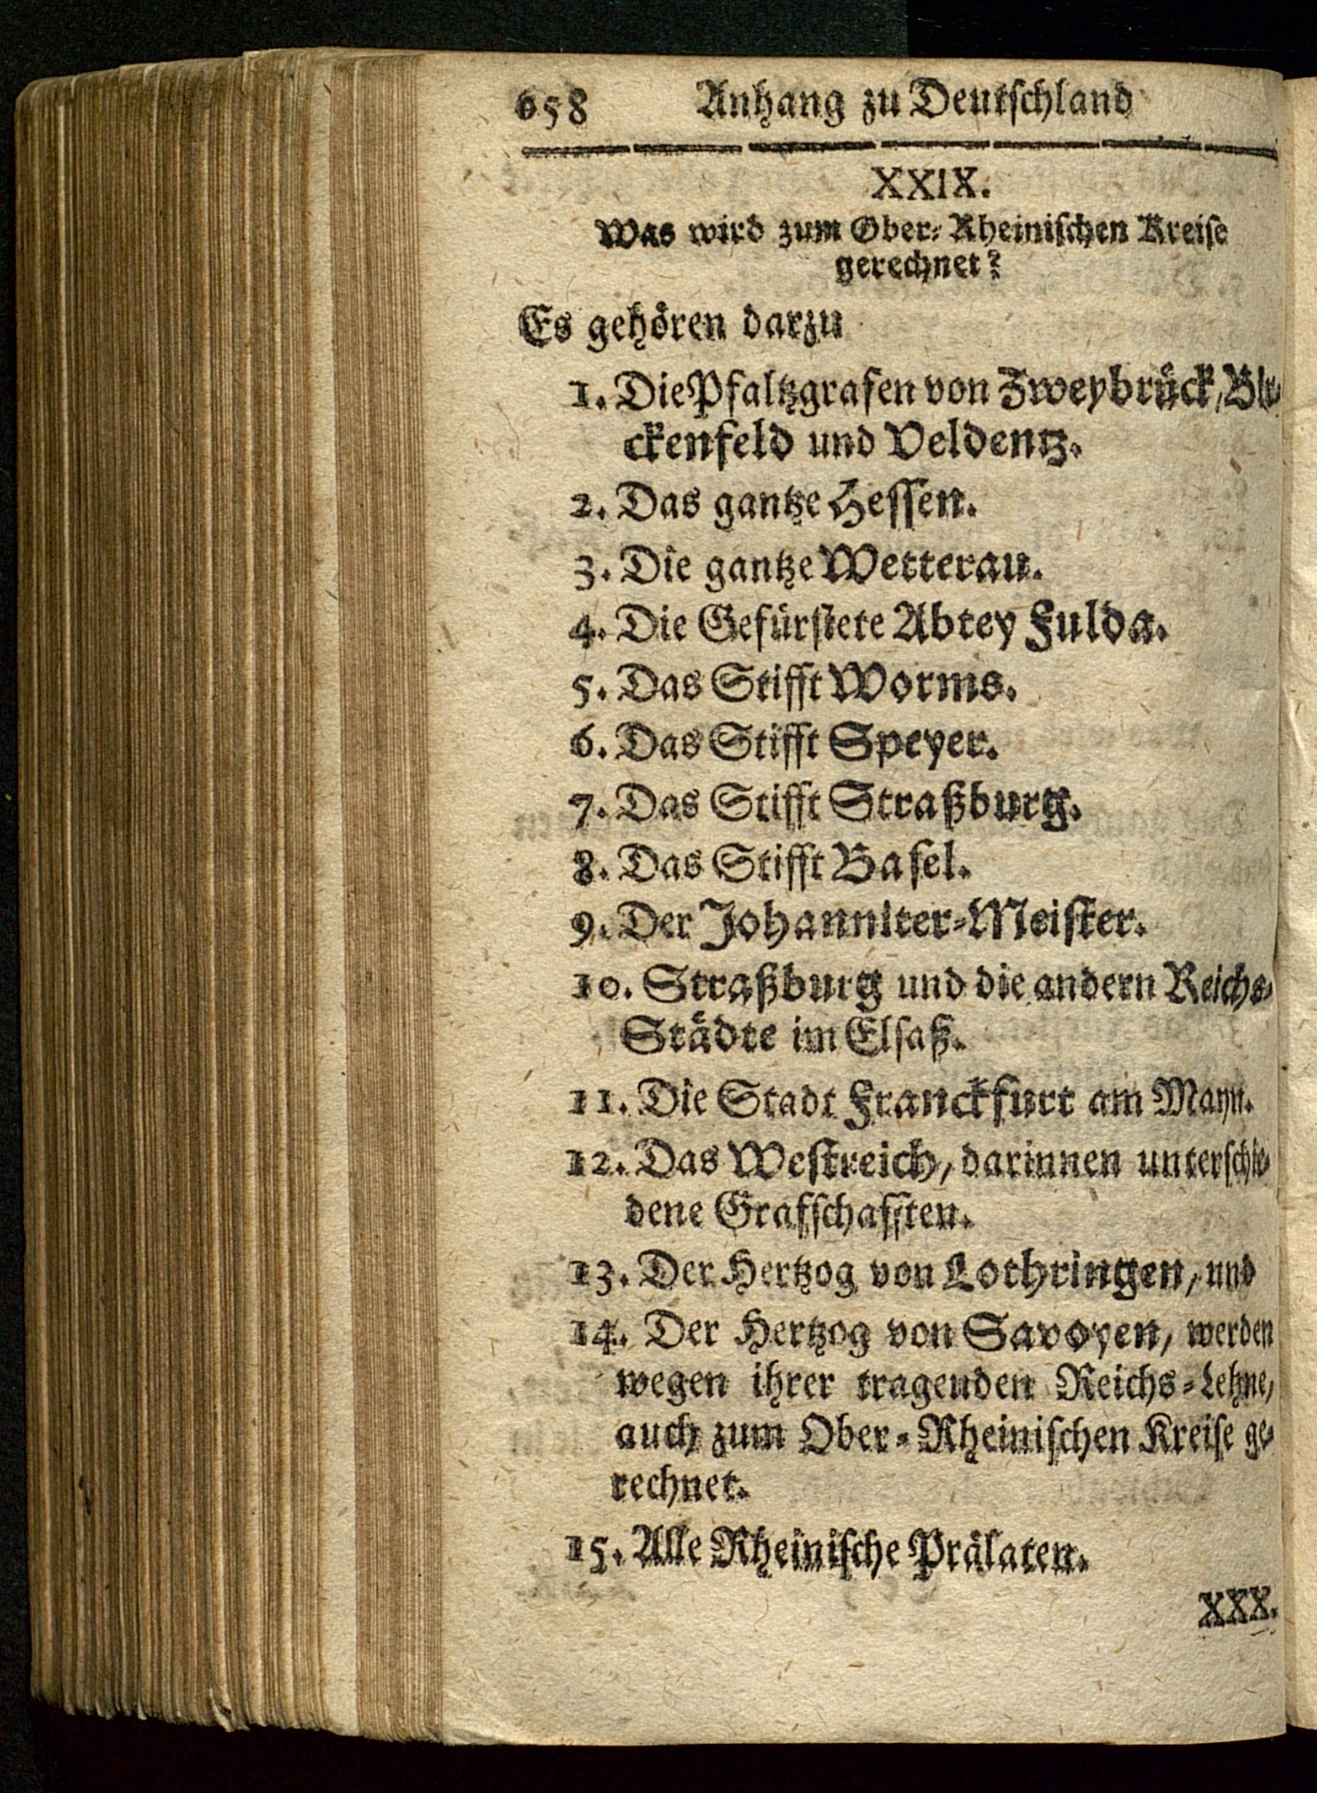 658 Anhang zu Deutschland
XXIX.
Was wird zum Ober-Rheinischen Kreise
gerechnet?
Es gehören darzu
1. Die Pfaltzgrafen von Zweybrück, Bir-
ckenfeld und Veldentz.
2. Das gantze Hessen.
3. Die gantze Wetterau.
4. Die Gefürstete Abtey Fulda.
5. Das Stifft Worms.
6. Das Stifft Speyer.
7. Das Stifft Straßburg.
8. Das Stifft Basel.
9. Der Johanniter-Meister.
10. Straßburg und die andern Reichs-
Städte im Elsaß.
11. Die Stadt Franckfurt am Mayn.
12. Das Westreich, darinnen unterschie-
dene Grafschafften.
13. Der Hertzog von Lothringen, und
14. Der Hertzog von Savoyen, werden
wegen ihrer tragenden Reichs-Lehne,
auch zum Ober-Rheinischen Kreise ge-
rechnet.
15. Alle Rheinische Prälaten.
XXX.